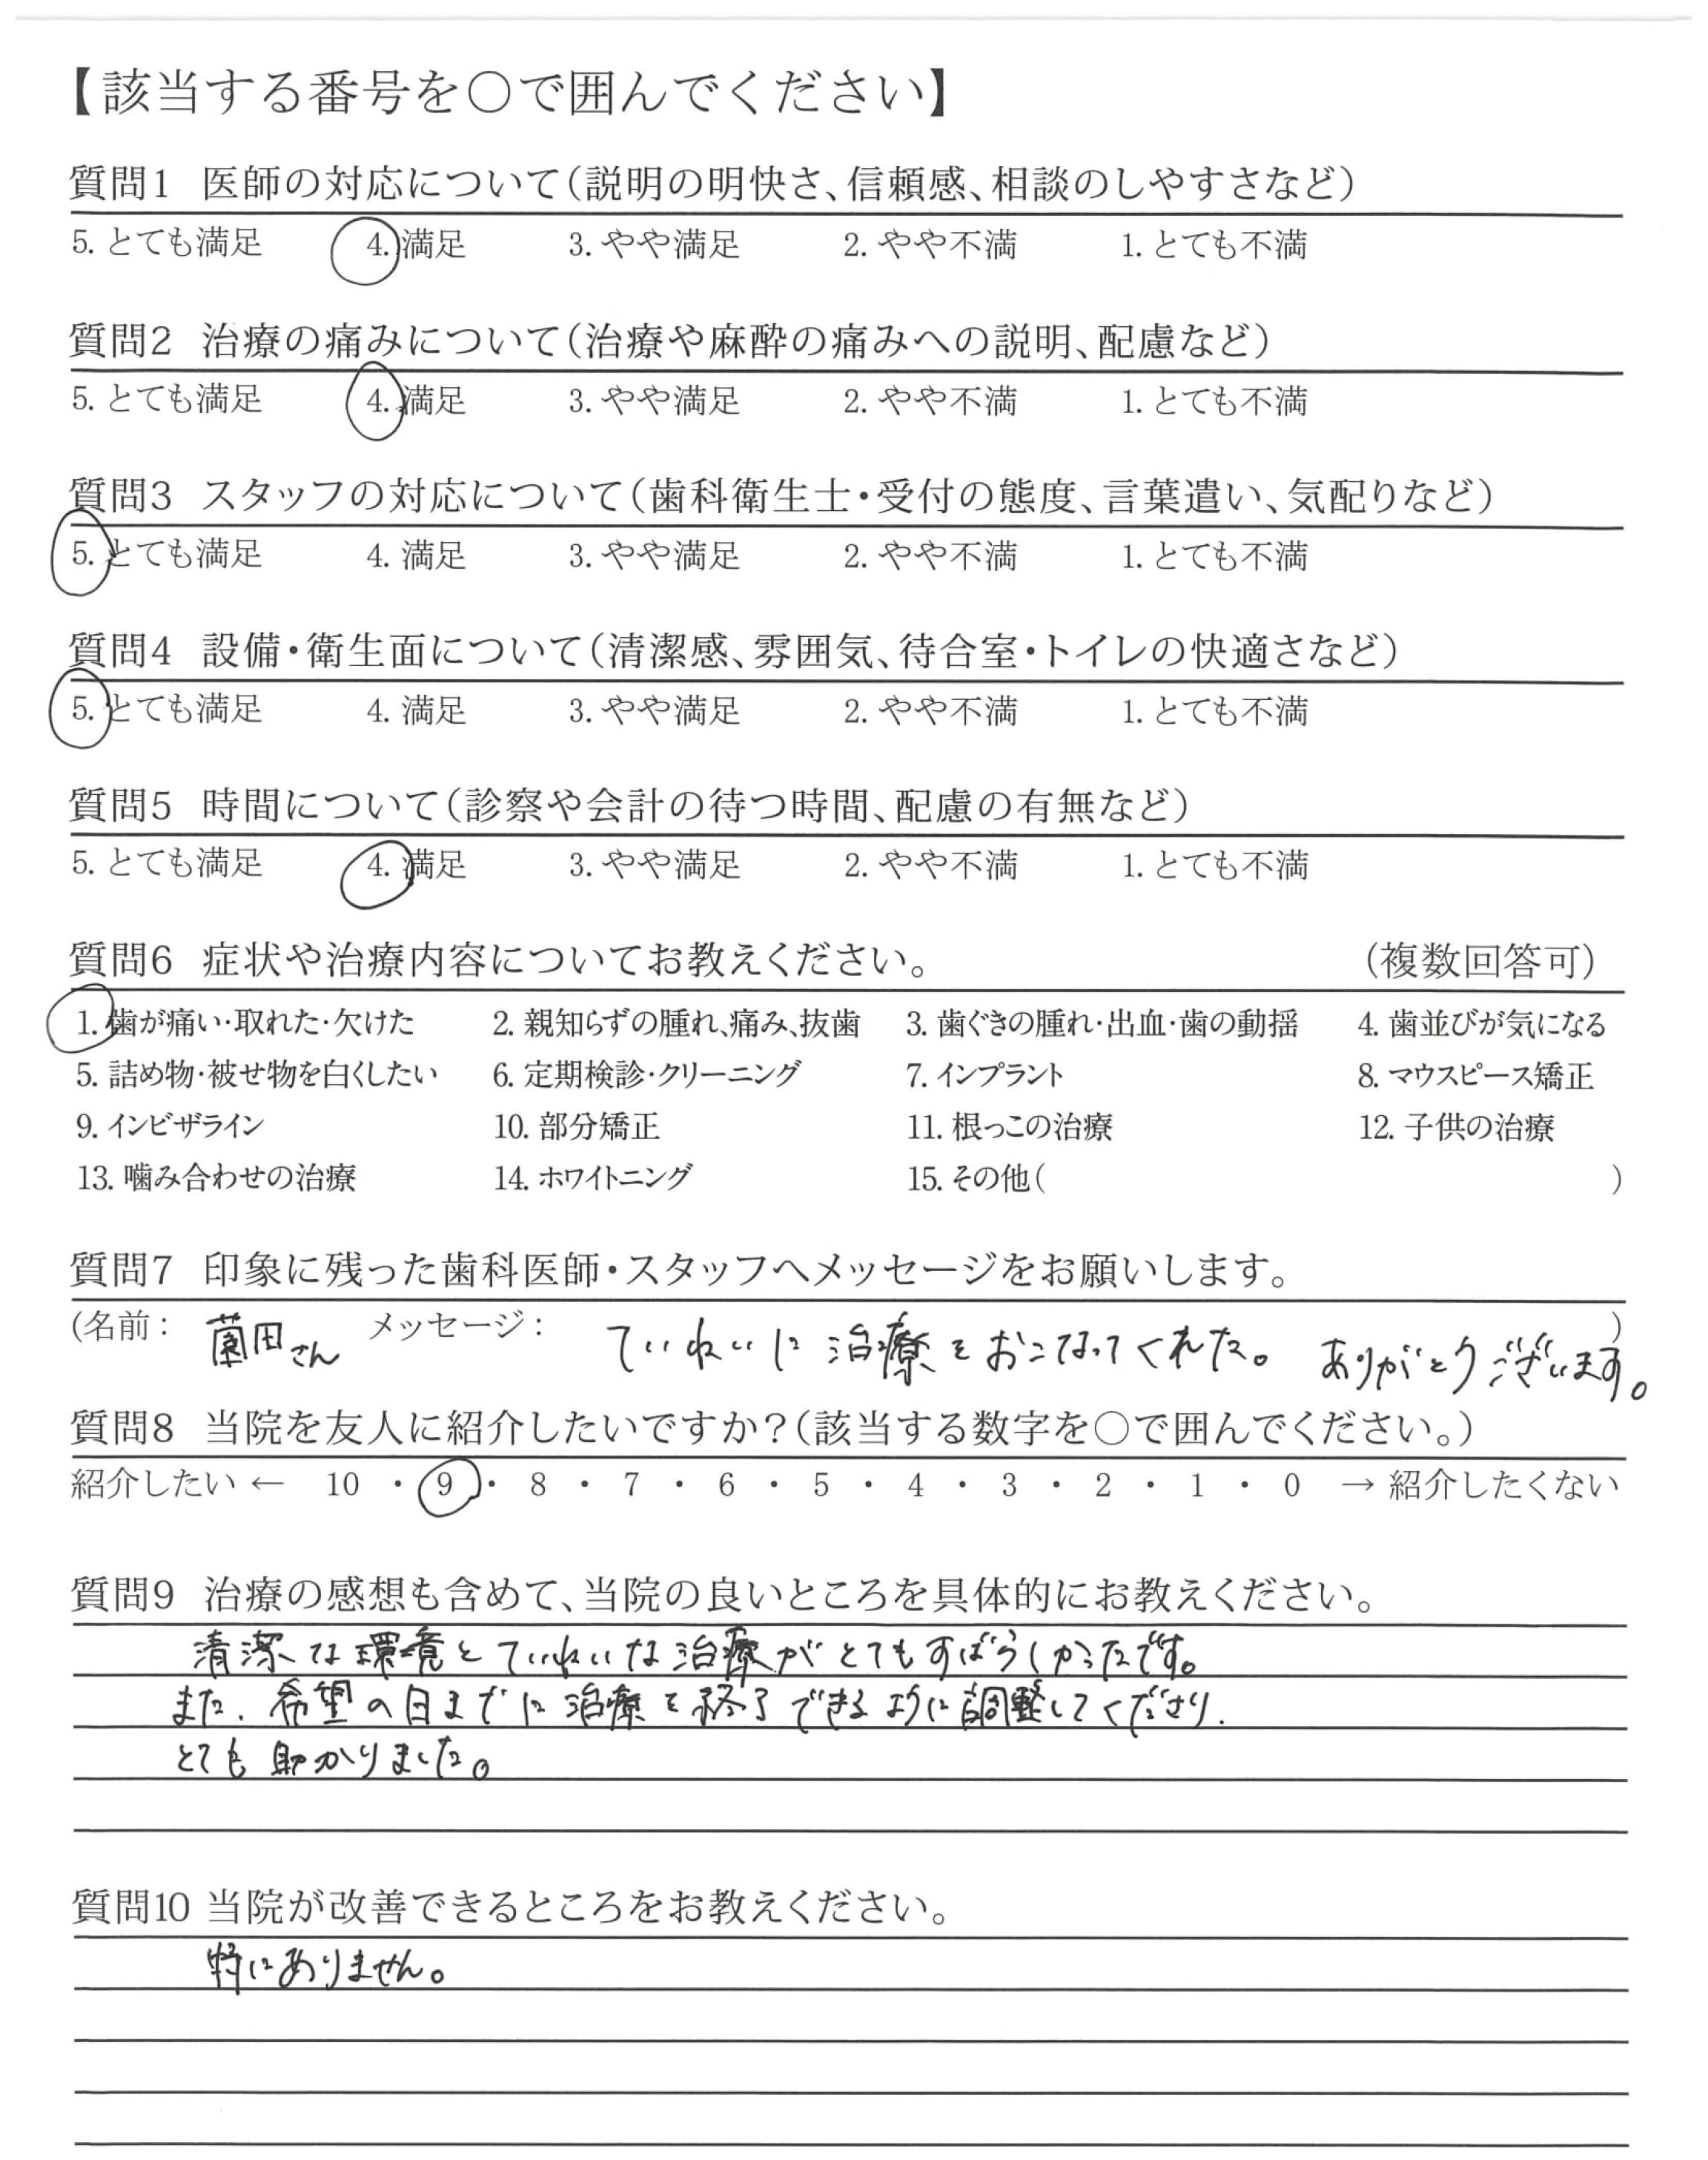 【該当する番号を○で囲んでください】
質問1 医師の対応について（説明の明快さ、信頼感、相談のしやすさなど）
5. とても満足 4. 満足 3. やや満足 2. やや不満 1. とても不満
質問2 治療の痛みについて（治療や麻酔の痛みへの説明、配慮など）
5. とても満足 4. 満足 3. やや満足 2. やや不満 1. とても不満
質問3 スタッフの対応について（歯科衛生士・受付の態度、言葉遣い、気配りなど）
5. とても満足 4. 満足 3. やや満足 2. やや不満 1. とても不満
質問4 設備・衛生面について（清潔感、雰囲気、待合室・トイレの快適さなど）
5. とても満足 4. 満足 3. やや満足 2. やや不満 1. とても不満
質問5 時間について（診察や会計の待つ時間、配慮の有無など）
5. とても満足 4. 満足 3. やや満足 2. やや不満 1. とても不満
質問6 症状や治療内容についてお教えください。 （複数回答可）
1. 歯が痛い・取れた・欠けた 2. 親知らずの腫れ、痛み、抜歯 3. 歯ぐきの腫れ・出血・歯の動揺 4. 歯並びが気になる
5. 詰め物・被せ物を白くしたい 6. 定期検診・クリーニング 7. インプラント 8. マウスピース矯正
9. インビザライン 10. 部分矯正 11. 根っこの治療 12. 子供の治療
13. 噛み合わせの治療 14. ホワイトニング 15. その他（ ）
質問7 印象に残った歯科医師・スタッフへメッセージをお願いします。
（名前： 薗田さん メッセージ： ていねいに治療をおこなってくれた。 ありがとうございます。）
質問8 当院を友人に紹介したいですか？（該当する数字を○で囲んでください。）
紹介したい ← 10 ・ 9 ・ 8 ・ 7 ・ 6 ・ 5 ・ 4 ・ 3 ・ 2 ・ 1 ・ 0 → 紹介したくない
質問9 治療の感想も含めて、当院の良いところを具体的にお教えください。
清潔な環境とていねいな治療がとてもすばらしかったです。
また、希望の日までに治療を終了できるように調整してくださり、
とても助かりました。
質問10 当院が改善できるところをお教えください。
特にありません。